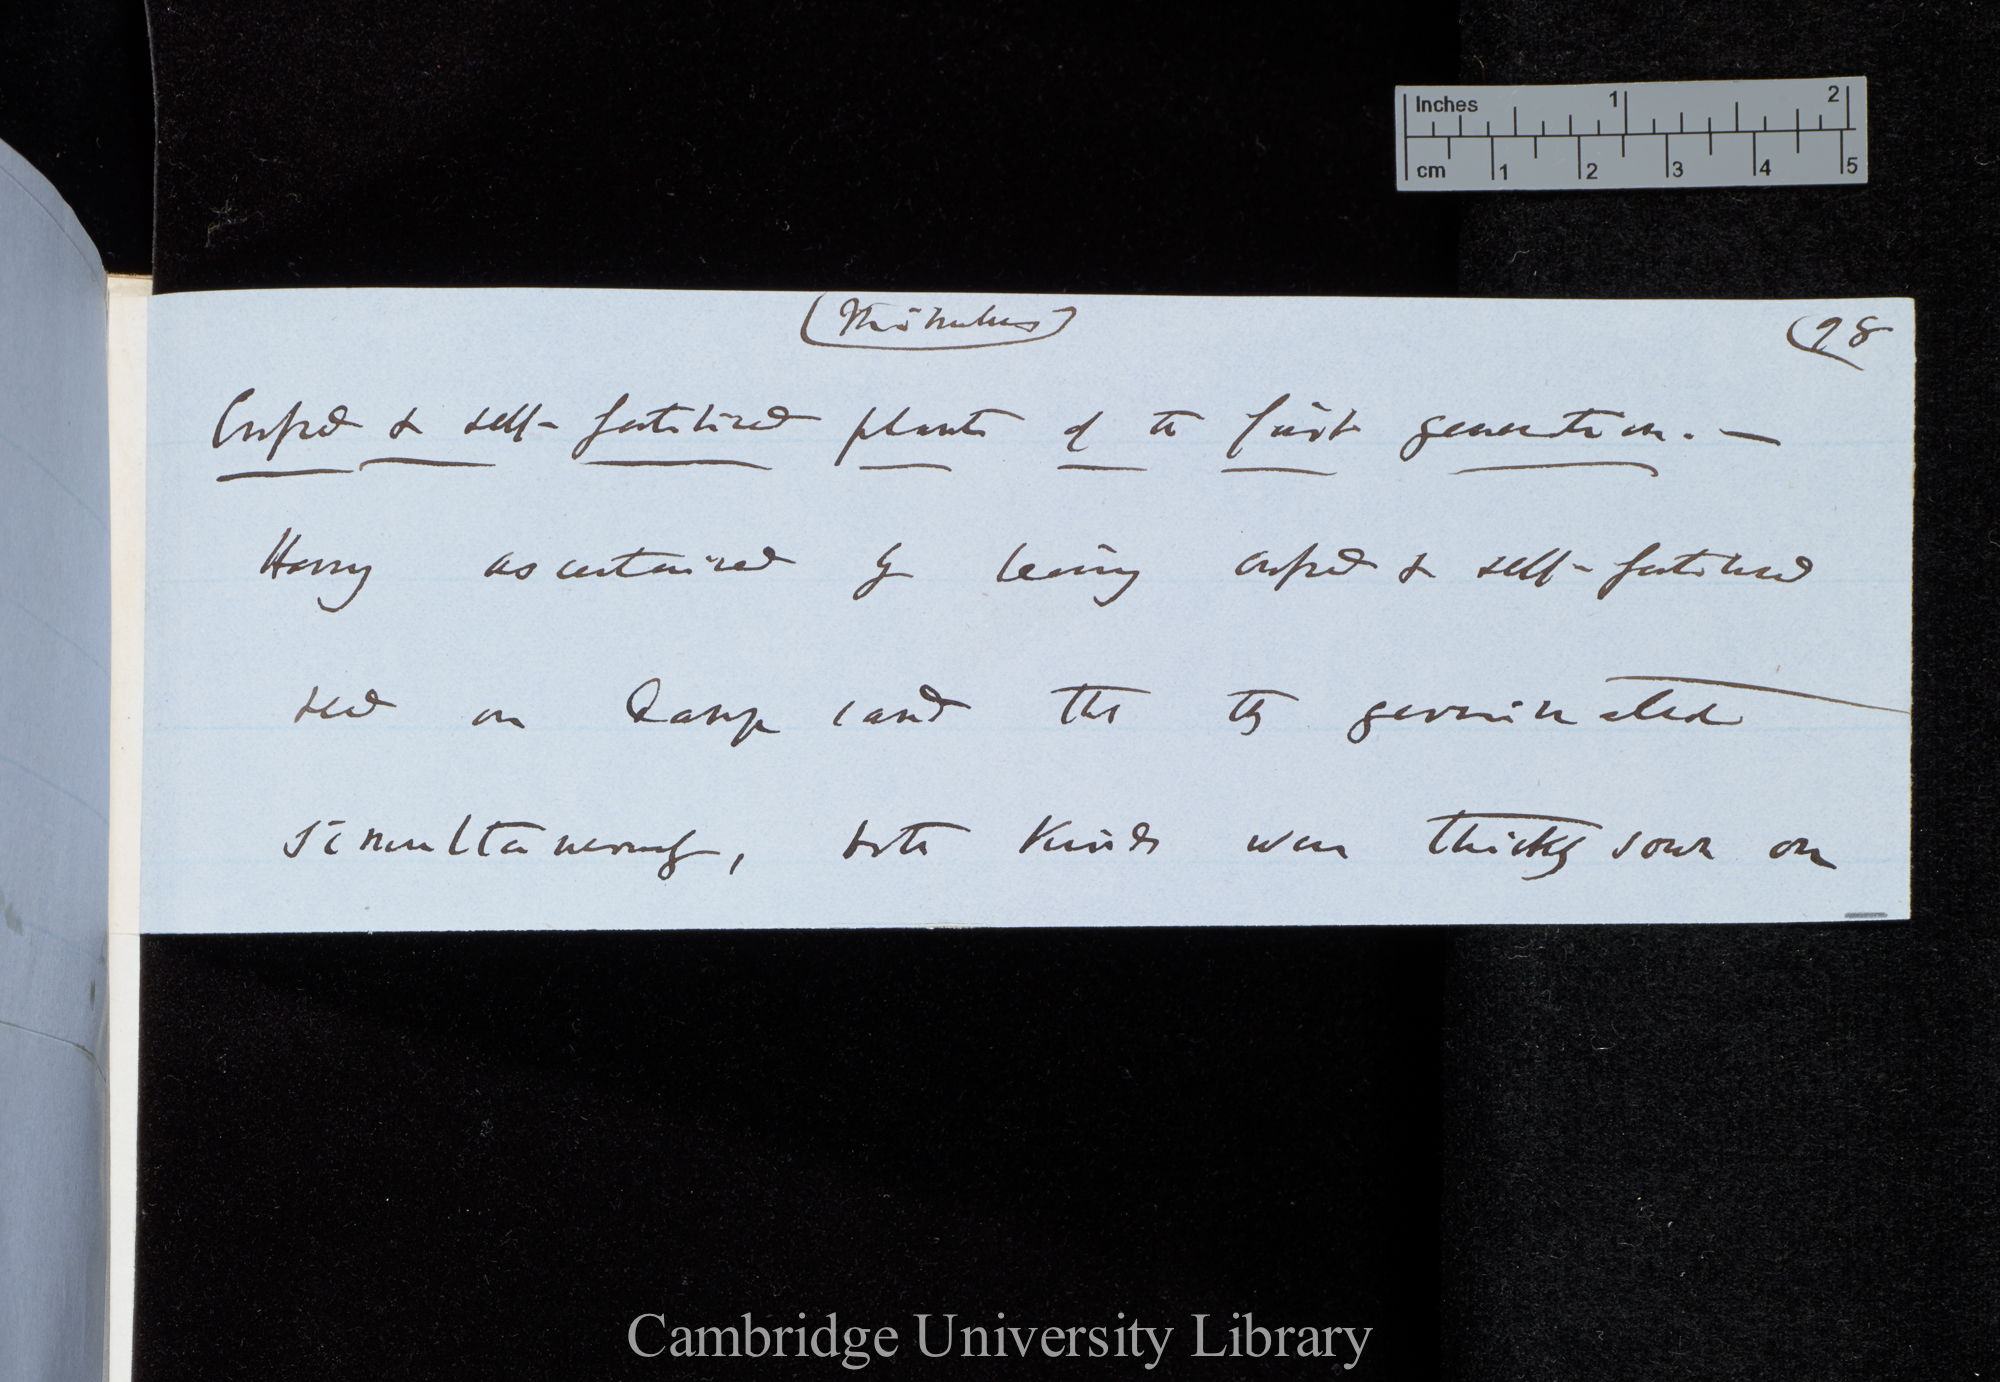 Inches 1 2
cm 1 2 3 4 5
(Mimulus)
(98
Crossed & self-fertilised plants of the first generation. —
Having ascertained by leaving crossed & self-fertilised
seed on damp sand that they germinated
simultaneously, both kinds were thickly sown on
Cambridge University Library